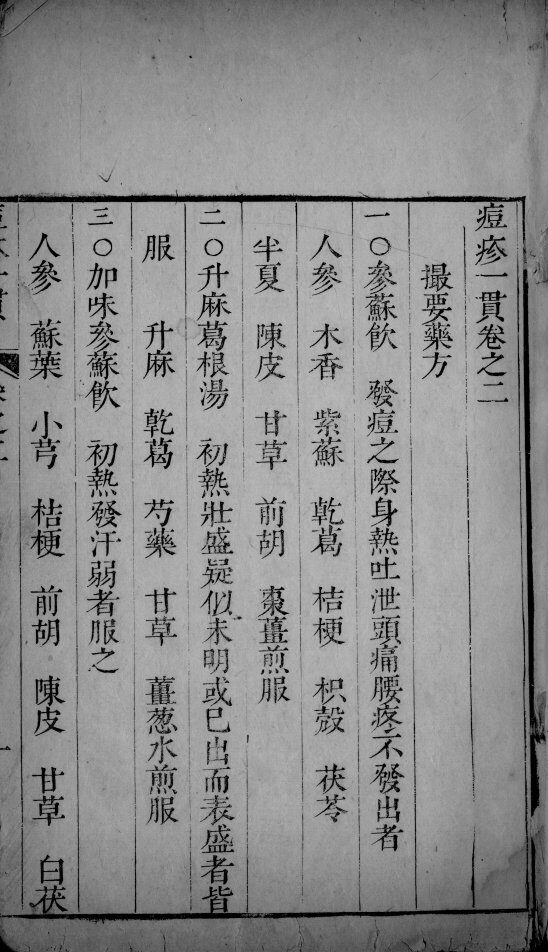 痘疹一貫卷之二
撮要藥方
一○參蘇飲　發痘之際身熱吐泄頭痛腰疼不發出者
人參　木香　紫蘇　乾葛　桔梗　枳殼　茯苓
半夏　陳皮　甘草　前胡　棗薑煎服
二○升麻葛根湯　初熱壯盛疑似未明或已出而表盛者皆
服　升麻　乾葛　芍藥　甘草　薑葱水煎服
三○加味參蘇飲　初熱發汗弱者服之
人參　蘇葉　小芎　桔梗　前胡　陳皮　甘草　白茯